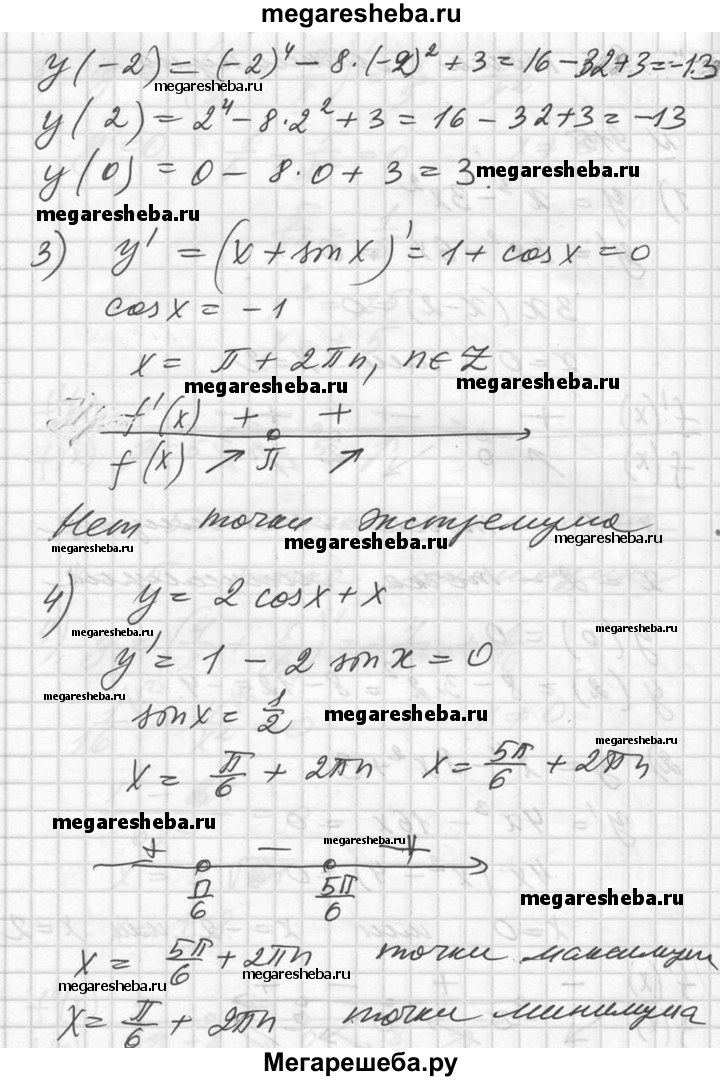 megaresheba.ru
y(-2) = (-2)⁴ - 8·(-2)² + 3 = 16 - 32 + 3 = -13
megaresheba.ru megaresheba.ru
y(2) = 2⁴ - 8·2² + 3 = 16 - 32 + 3 = -13
y(0) = 0 - 8·0 + 3 = 3 megaresheba.ru
megaresheba.ru
3) y' = (x + sin x)' = 1 + cos x = 0
cos x = -1
x = π + 2πn, n ∈ Z
megaresheba.ru megaresheba.ru
f'(x) + +
f(x) ↗ π ↗
Нет точки экстремума
megaresheba.ru megaresheba.ru megaresheba.ru
4) y = 2 cos x + x
megaresheba.ru megaresheba.ru
y' = 1 - 2 sin x = 0
megaresheba.ru
sin x = 1/2 megaresheba.ru
megaresheba.ru
x = π/6 + 2πn x = 5π/6 + 2πn
megaresheba.ru
megaresheba.ru
+ - +
π/6 5π/6
megaresheba.ru
x = 5π/6 + 2πn точки максимум
megaresheba.ru megaresheba.ru
x = π/6 + 2πn точки минимума
megaresheba.ru
Мегарешеба.ру